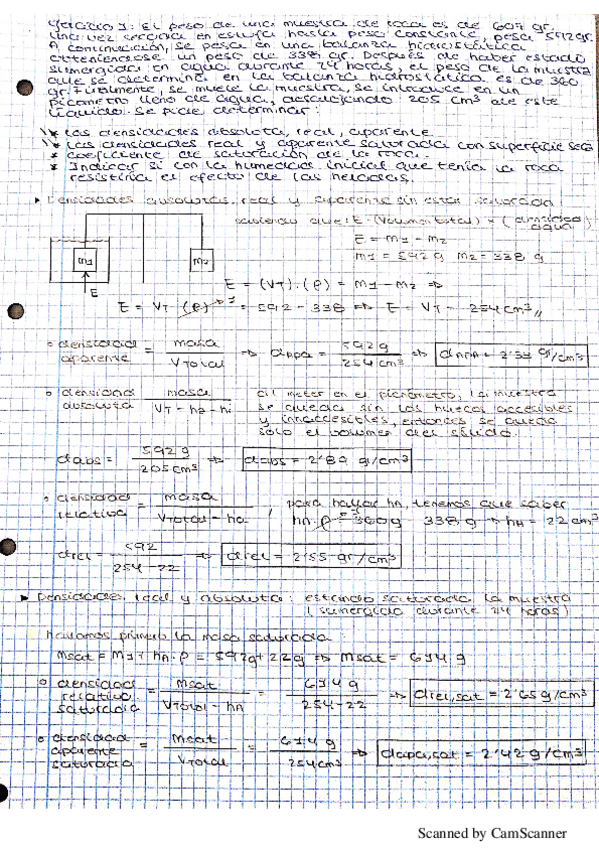 Ejercicio 1: El peso de una muestra de roca es de 607 gr.
Una vez secada en estufa hasta peso constante, pesa 592 gr.
A continuación, se pesa en una balanza hidrostática
obteniendose un peso de 338 gr. Después de haber estado
sumergida en agua durante 24 horas el peso de la muestra
que se determina en la balanza hidrostática es de 360
gr. Finalmente, se muele la muestra, se introduce en un
picnometro lleno de agua, desalojando 205 cm³ de este
líquido. Se pide determinar:
* Las densidades absoluta, real, aparente.
* Las densidades real y aparente saturada con superficie seca
* Coeficiente de saturación de la roca.
* Indicar si con la humedad inicial que tenía la roca
resistiría el efecto de las heladas.
Densidades absolutas, real y aparente sin estar saturada
sabiendo que: E = (Volumen total) · (densidad agua)
E = m1 - m2
m1 = 592 g m2 = 338 g
m1 m2
E
E = (VT) · (ρ) = m1 - m2 ⇒
E = VT · (ρ) = 592 - 338 ⇒ E = VT = 254 cm³
densidad aparente = masa / VTotal ⇒ dapa = 592 g / 254 cm³ ⇒ dapa = 2'34 gr/cm³
densidad absoluta = masa / VT - ha - hi
al meter en el picnómetro, la muestra
se queda sin los huecos accesibles
y innaccesibles, entonces se queda
sólo el volumen del sólido.
dabs = 592 g / 205 cm³ ⇒ dabs = 2'89 gr/cm³
densidad relativa = masa / VTotal - ha , para hallar ha, tenemos que saber
ha · ρ = 360 g - 338 g ⇒ ha = 22 cm³
drel = 592 / 254 - 22 ⇒ drel = 2'55 gr/cm³
Densidades real y absoluta: estando saturada la muestra
(sumergida durante 24 horas)
Hallamos primero la masa saturada:
Msat = M1 + ha · ρ = 592 g + 22 g ⇒ Msat = 614 g
densidad relativa saturada = Msat / VTotal - ha = 614 g / 254 - 22 ⇒ drel,sat = 2'65 g/cm³
densidad aparente saturada = Msat / VTotal = 614 g / 254 cm³ ⇒ dapa,sat = 2'42 g/cm³
Scanned by CamScanner